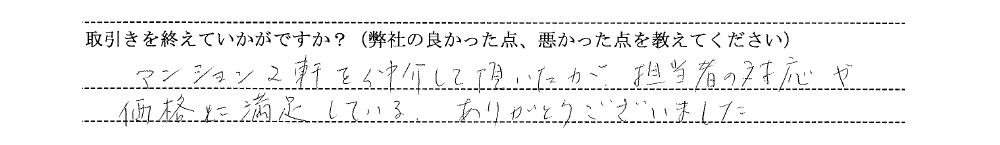 取引きを終えていかがですか？（弊社の良かった点、悪かった点を教えてください）
マンション2軒を仲介して頂いたが、担当者の対応や
価格共に満足している。ありがとうございました